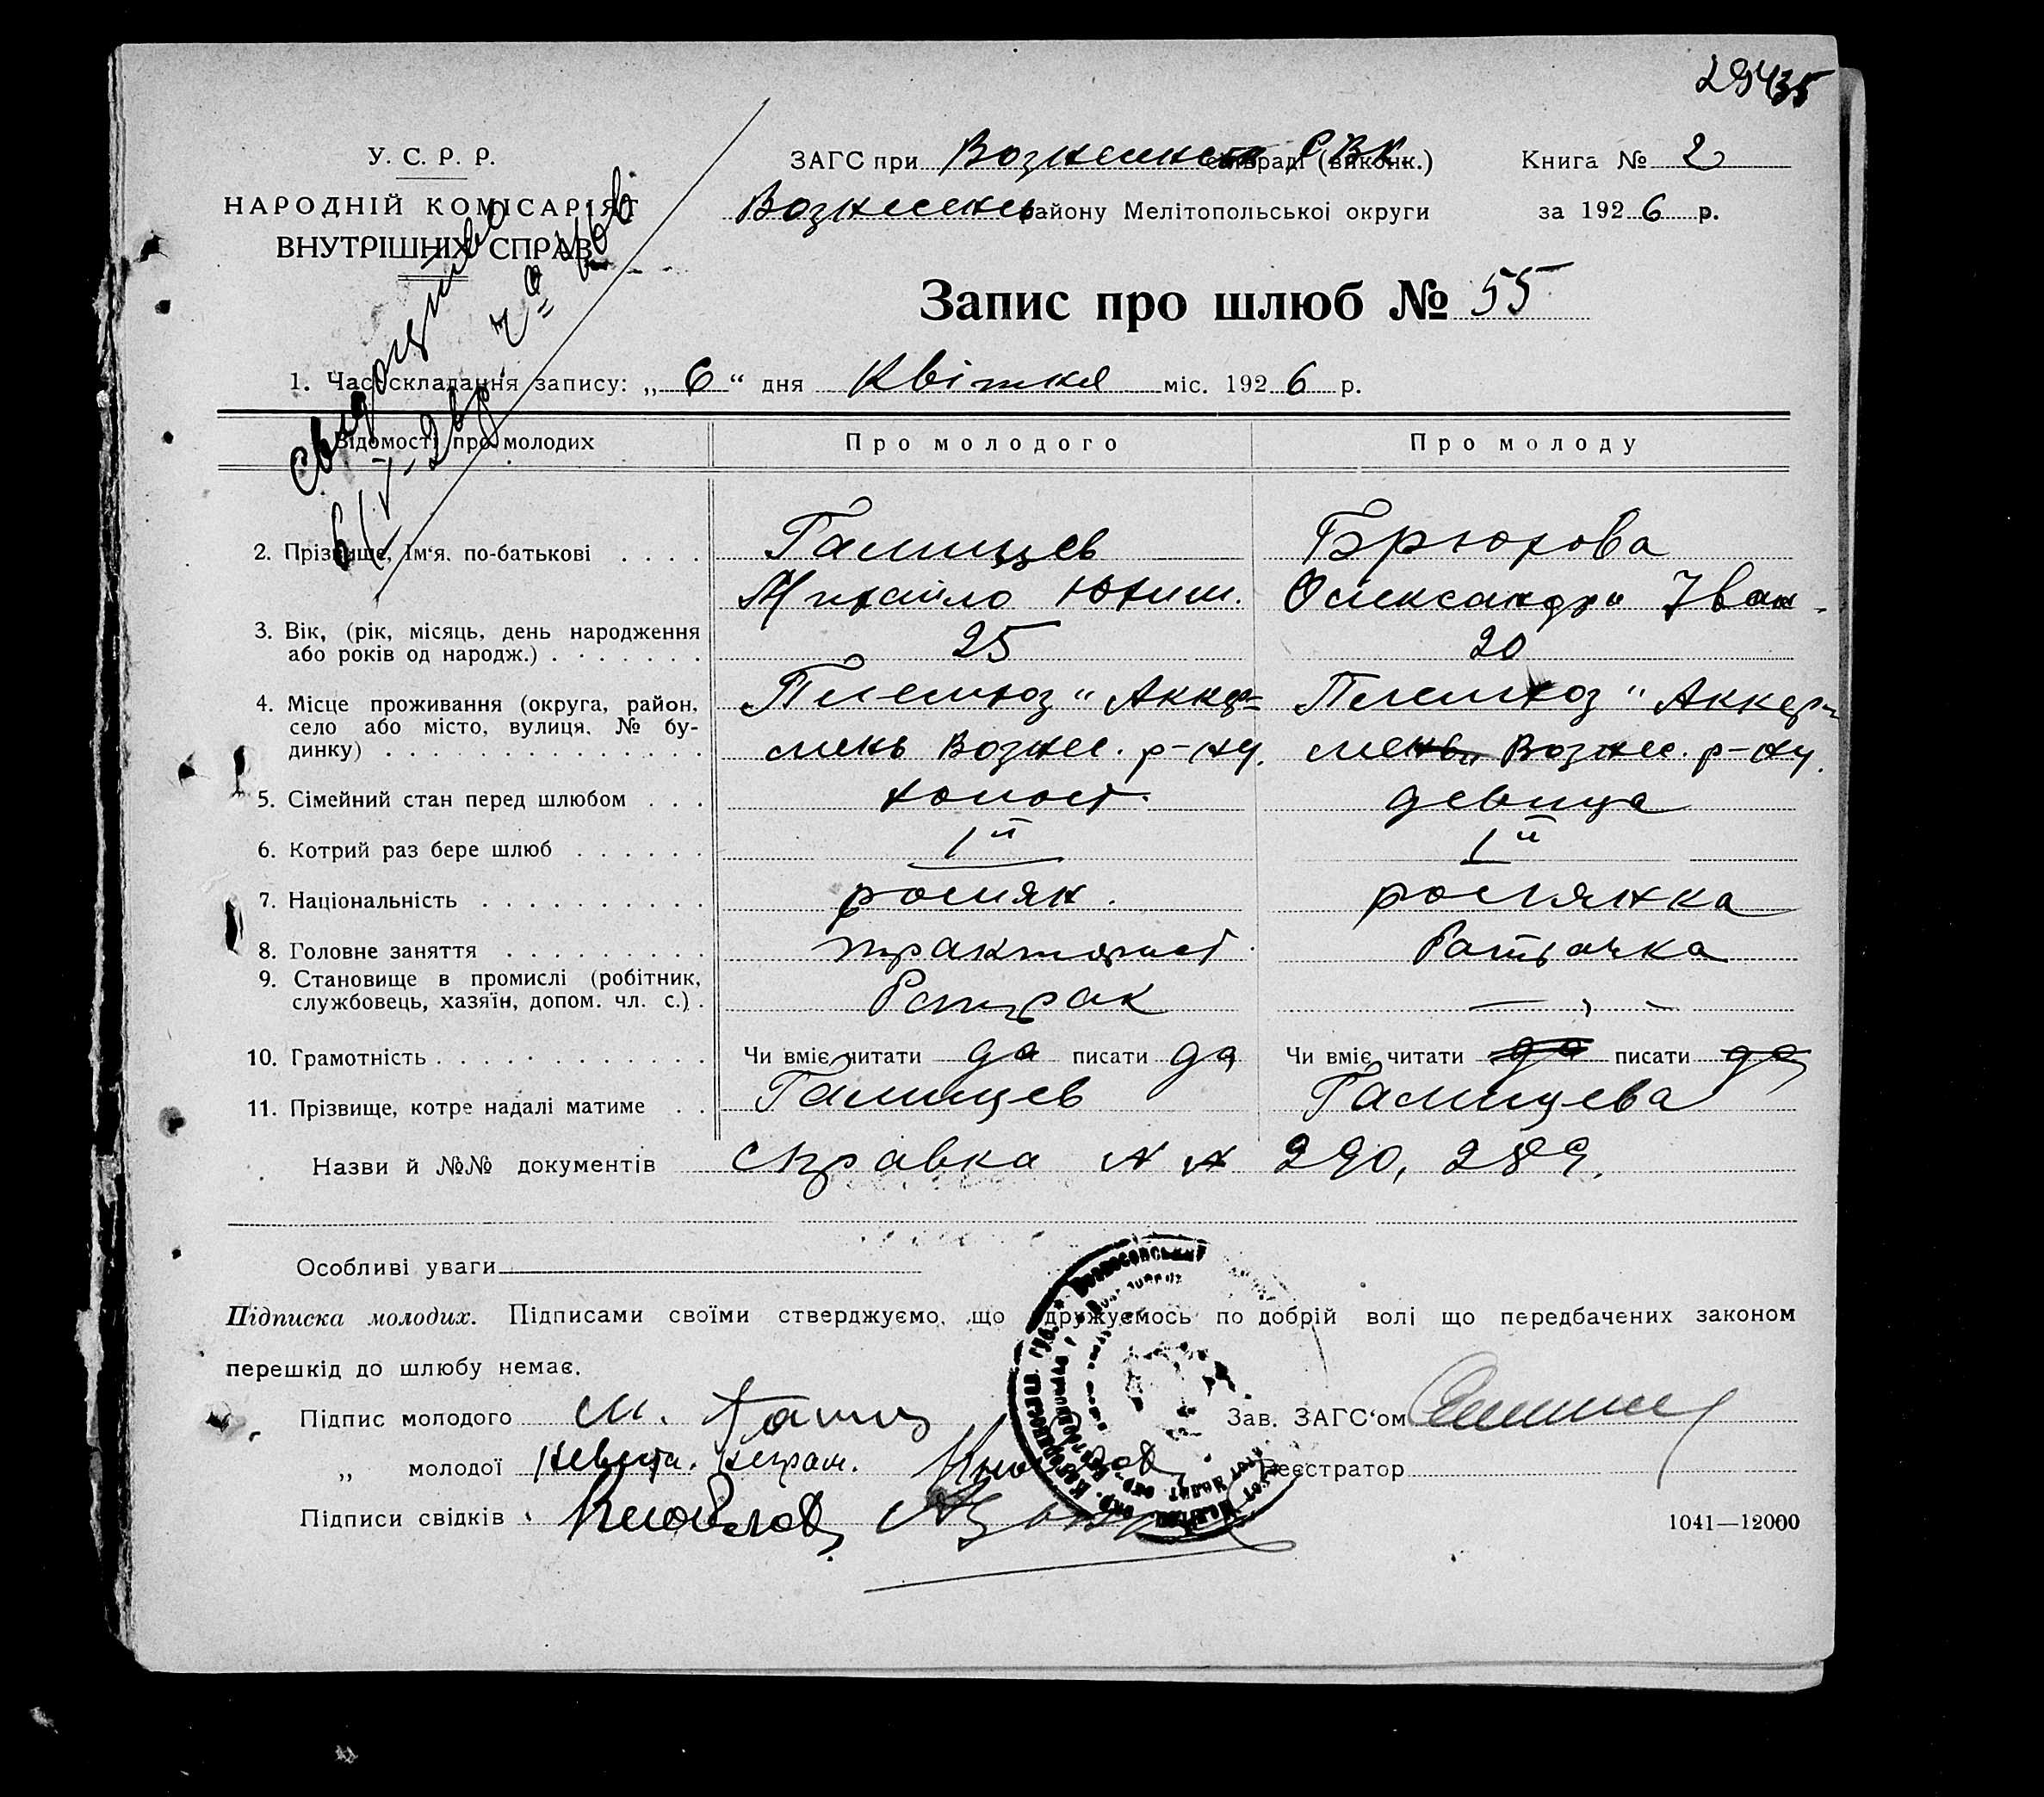 У. С. Р. Р.
НАРОДНІЙ КОМІСАРІЯТ
ВНУТРІШНІХ СПРАВ
ЗАГС при Вознесенск сільраді (виконк.) РВК.
Книга № 2
Вознесенск району Мелітопольської округи
за 1926 р.
Запис про шлюб № 55
1. Час складання запису: „ 6 “ дня Квітня міс. 1926 р.
Відомості про молодих
Про молодого
Про молоду
2. Прізвище, ім‘я, по-батькові
Галицев
Михайло Юхим.
Брюхова
Олександра Іван
3. Вік, (рік, місяць, день народження
або років од народж.)
25
20
4. Місце проживання (округа, район,
село або місто, вулиця, № бу-
динку)
Племхоз "Аккер-
мень Вознес. р-ну.
Племхоз "Аккер-
мень Вознес. р-ну.
5. Сімейний стан перед шлюбом
холост.
девица
6. Котрий раз бере шлюб
1й
1й
7. Національність
росіян.
росіянка
8. Головне заняття
тракторист
Батрачка
9. Становище в промислі (робітник,
службовець, хазяїн, допом. чл. с.)
Батрак
— „ —
10. Грамотність
Чи вміє читати да писати да
Чи вміє читати да писати да
11. Прізвище, котре надалі матиме
Галицев
Галицева
Назви й №№ документів справка № № 290, 289.
Особливі уваги
Підписка молодих. Підписами своїми стверджуємо, що одружуємось по добрій волі що передбачених законом
перешкід до шлюбу немає.
Підпис молодого М. Галиц
Зав. ЗАГС‘ом
„ молодої Невеста. неграм.
Реєстратор
Підписи свідків
1041—12000